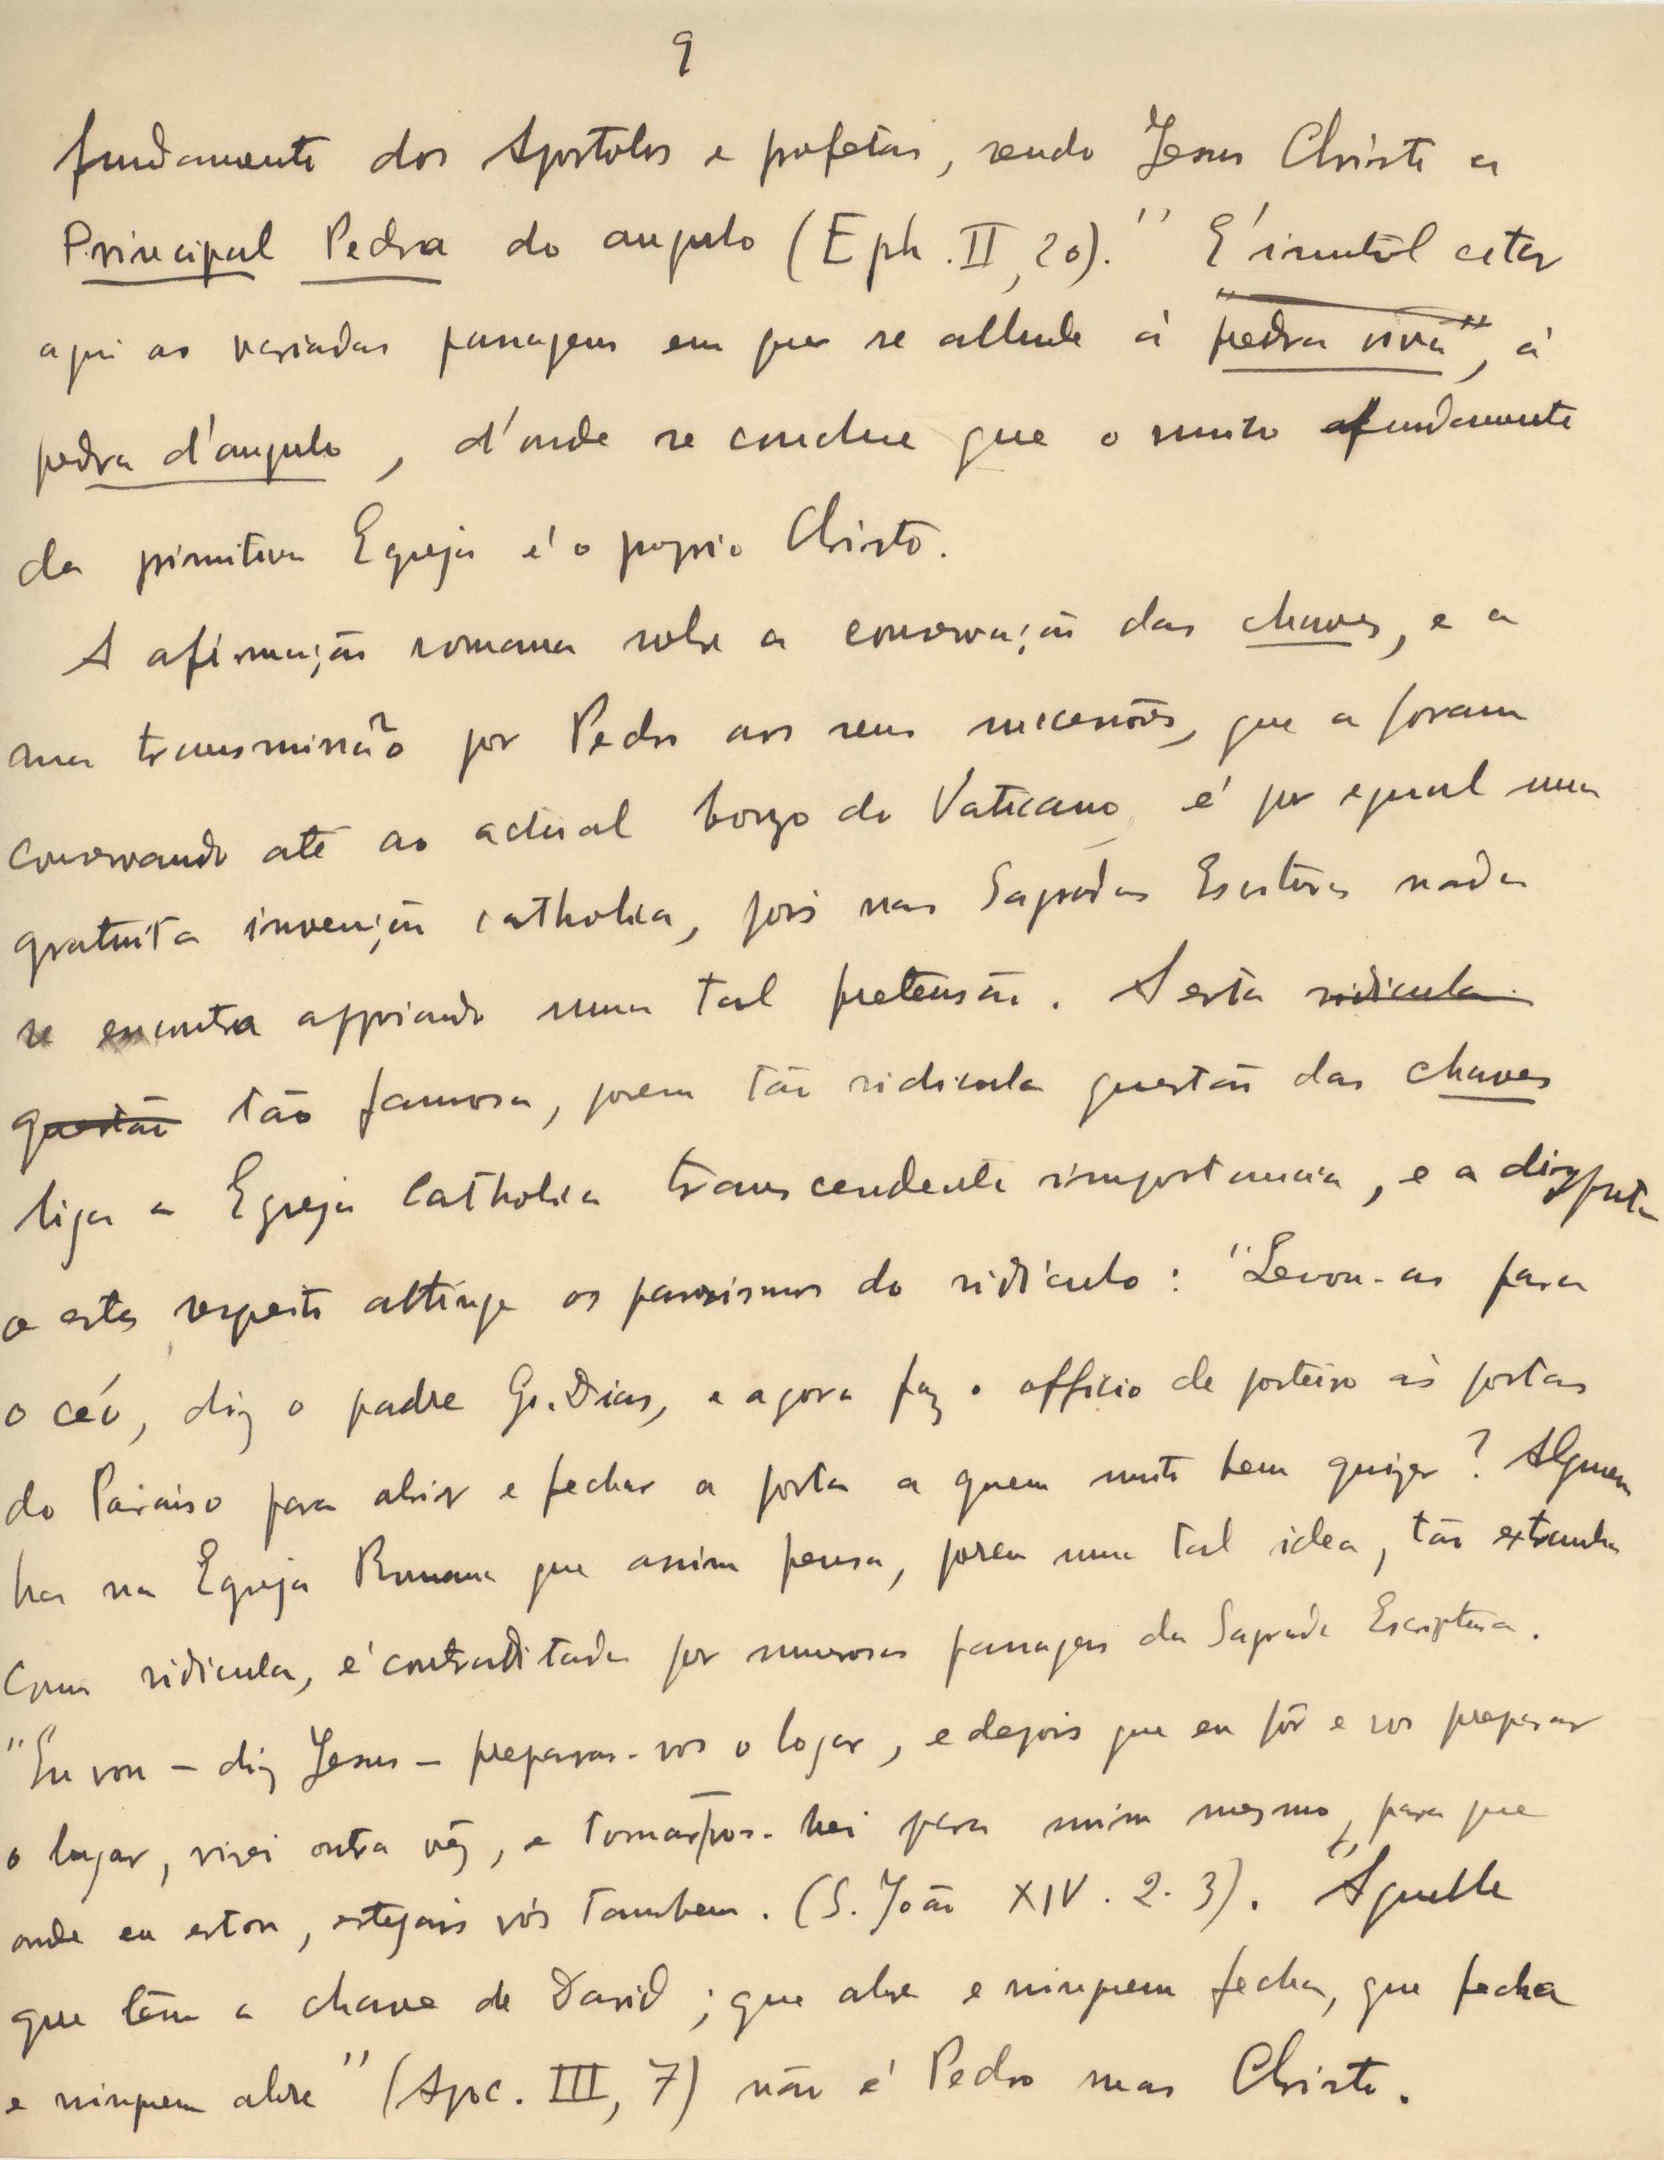 9
fundamento dos Apostolos e profetas, sendo Jesus Christo a
Principal Pedra do angulo (Eph. II, 20)." E' inutil citar
aqui as variadas passagens em que se allude á "pedra viva", á
pedra d'angulo, d'onde se conclue que o unico fundamento
da primitiva Egreja é o proprio Christo.
A afirmação romana sobre a conservação das chaves, e a
sua transmissão por Pedro aos seus successores, que a foram
conservando até ao actual do Vaticano, é por egual uma
gratuita invenção catholica, pois nas Sagradas Escrituras nada
se encontra appoiando uma tal pretensão. A esta ridicula
questão tão famosa, porem tão ridicula questão das chaves
liga a Egreja Catholica transcendente importancia, e a disputa
a este respeito attinge os paroxismos do ridiculo: "Levou-as para
o céo, diz o padre G. Dias, e agora faz o officio de porteiro ás portas
do Paraiso para abrir e fechar a porta a quem muito bem quizer? Alguem
ha na Egreja Romana que assim pensa, porem uma tal idea, tão extranha
como ridicula, é contraditada por numerosas passagens da Sagrada Escriptura.
"Eu vou – diz Jesus – preparar-vos o logar, e depois que eu fôr e vos preparar
o lugar, virei outra vêz, e tomar-vos-hei para mim mesmo, para que
onde eu estou, estejais vós tambem. (S. João XIV. 2. 3). "Aquelle
que têm a chave de David; que abre e ninguem fecha, que fecha
e ninguem abre" (Apoc. III, 7) não é Pedro mas Christo.